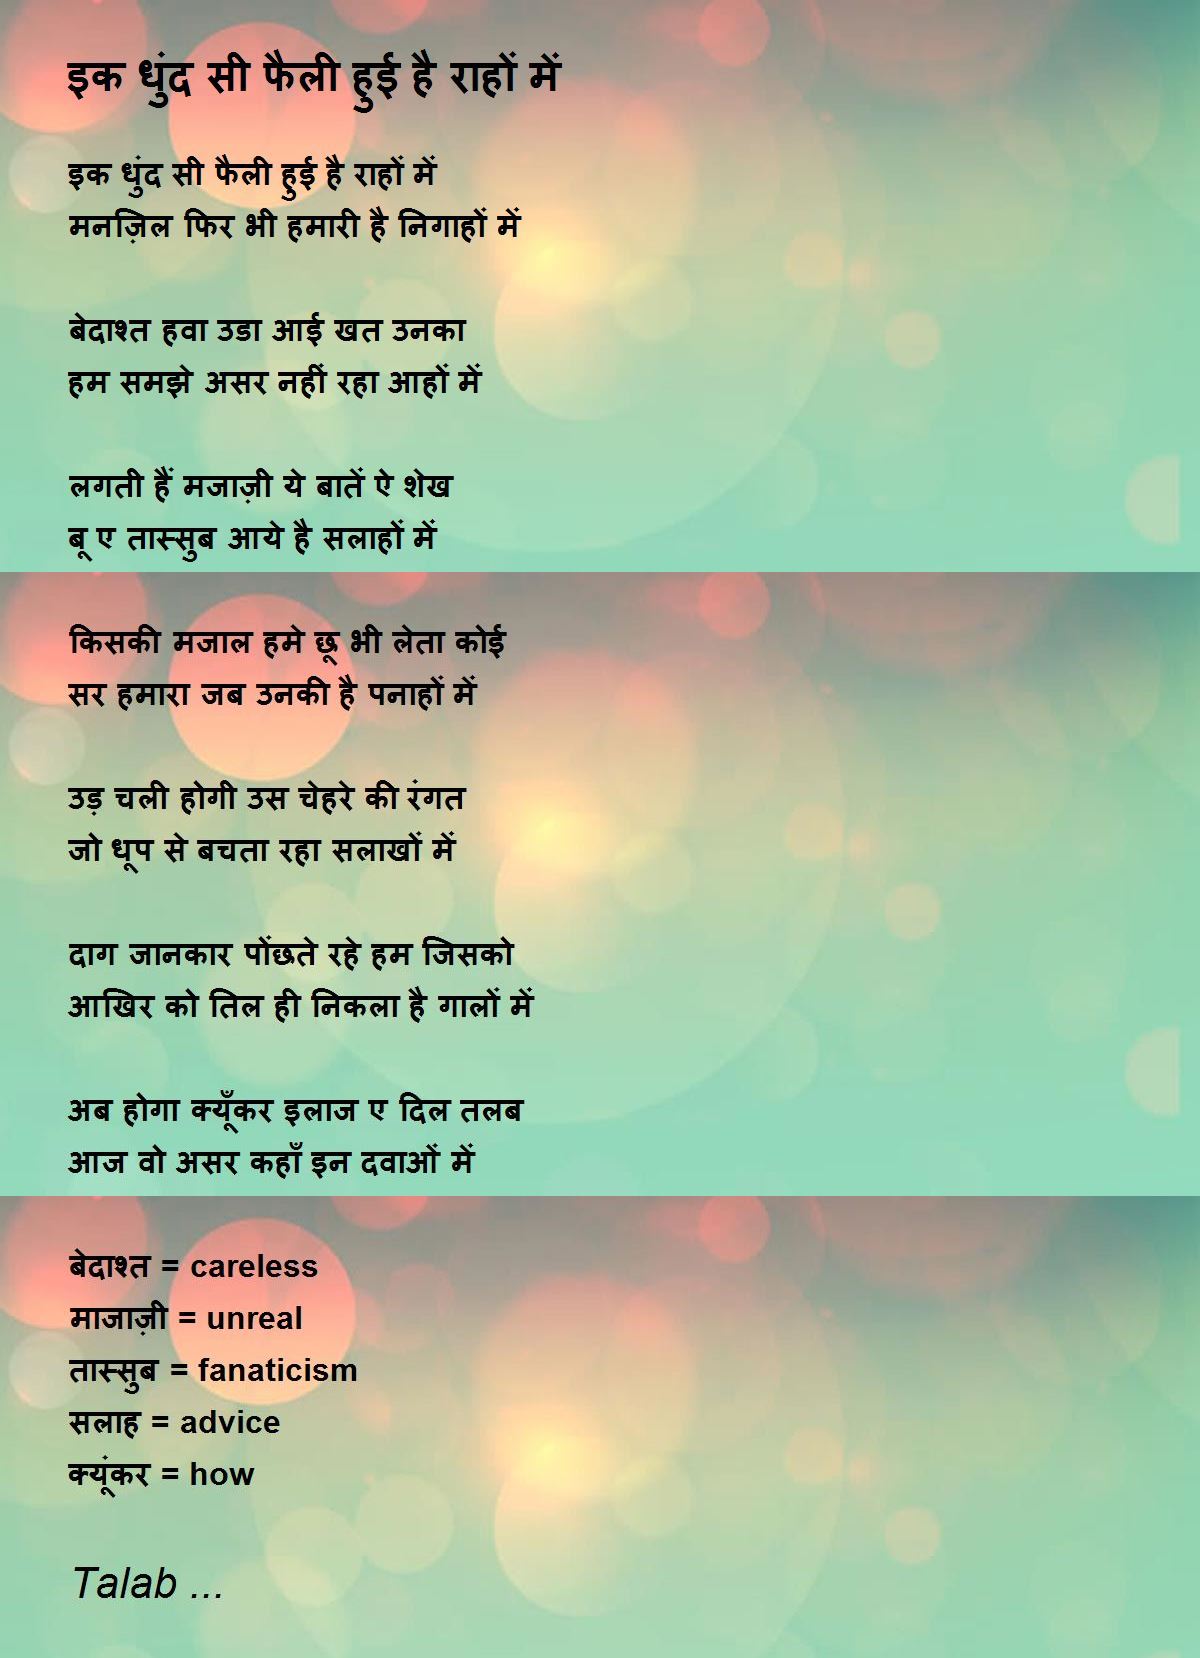 इक धुंद सी फैली हुई है राहों में
इक धुंद सी फैली हुई है राहों में
मनज़िल फिर भी हमारी है निगाहों में
बेदाश्त हवा उडा आई खत उनका
हम समझे असर नहीं रहा आहों में
लगती हैं मजाज़ी ये बातें ऐ शेख
बू ए तास्सुब आये है सलाहों में
किसकी मजाल हमे छू भी लेता कोई
सर हमारा जब उनकी है पनाहों में
उड़ चली होगी उस चेहरे की रंगत
जो धूप से बचता रहा सलाखों में
दाग जानकार पोंछते रहे हम जिसको
आखिर को तिल ही निकला है गालों में
अब होगा क्यूँकर इलाज ए दिल तलब
आज वो असर कहाँ इन दवाओं में
बेदाश्त = careless
माजाज़ी = unreal
तास्सुब = fanaticism
सलाह = advice
क्यूंकर = how
Talab ...